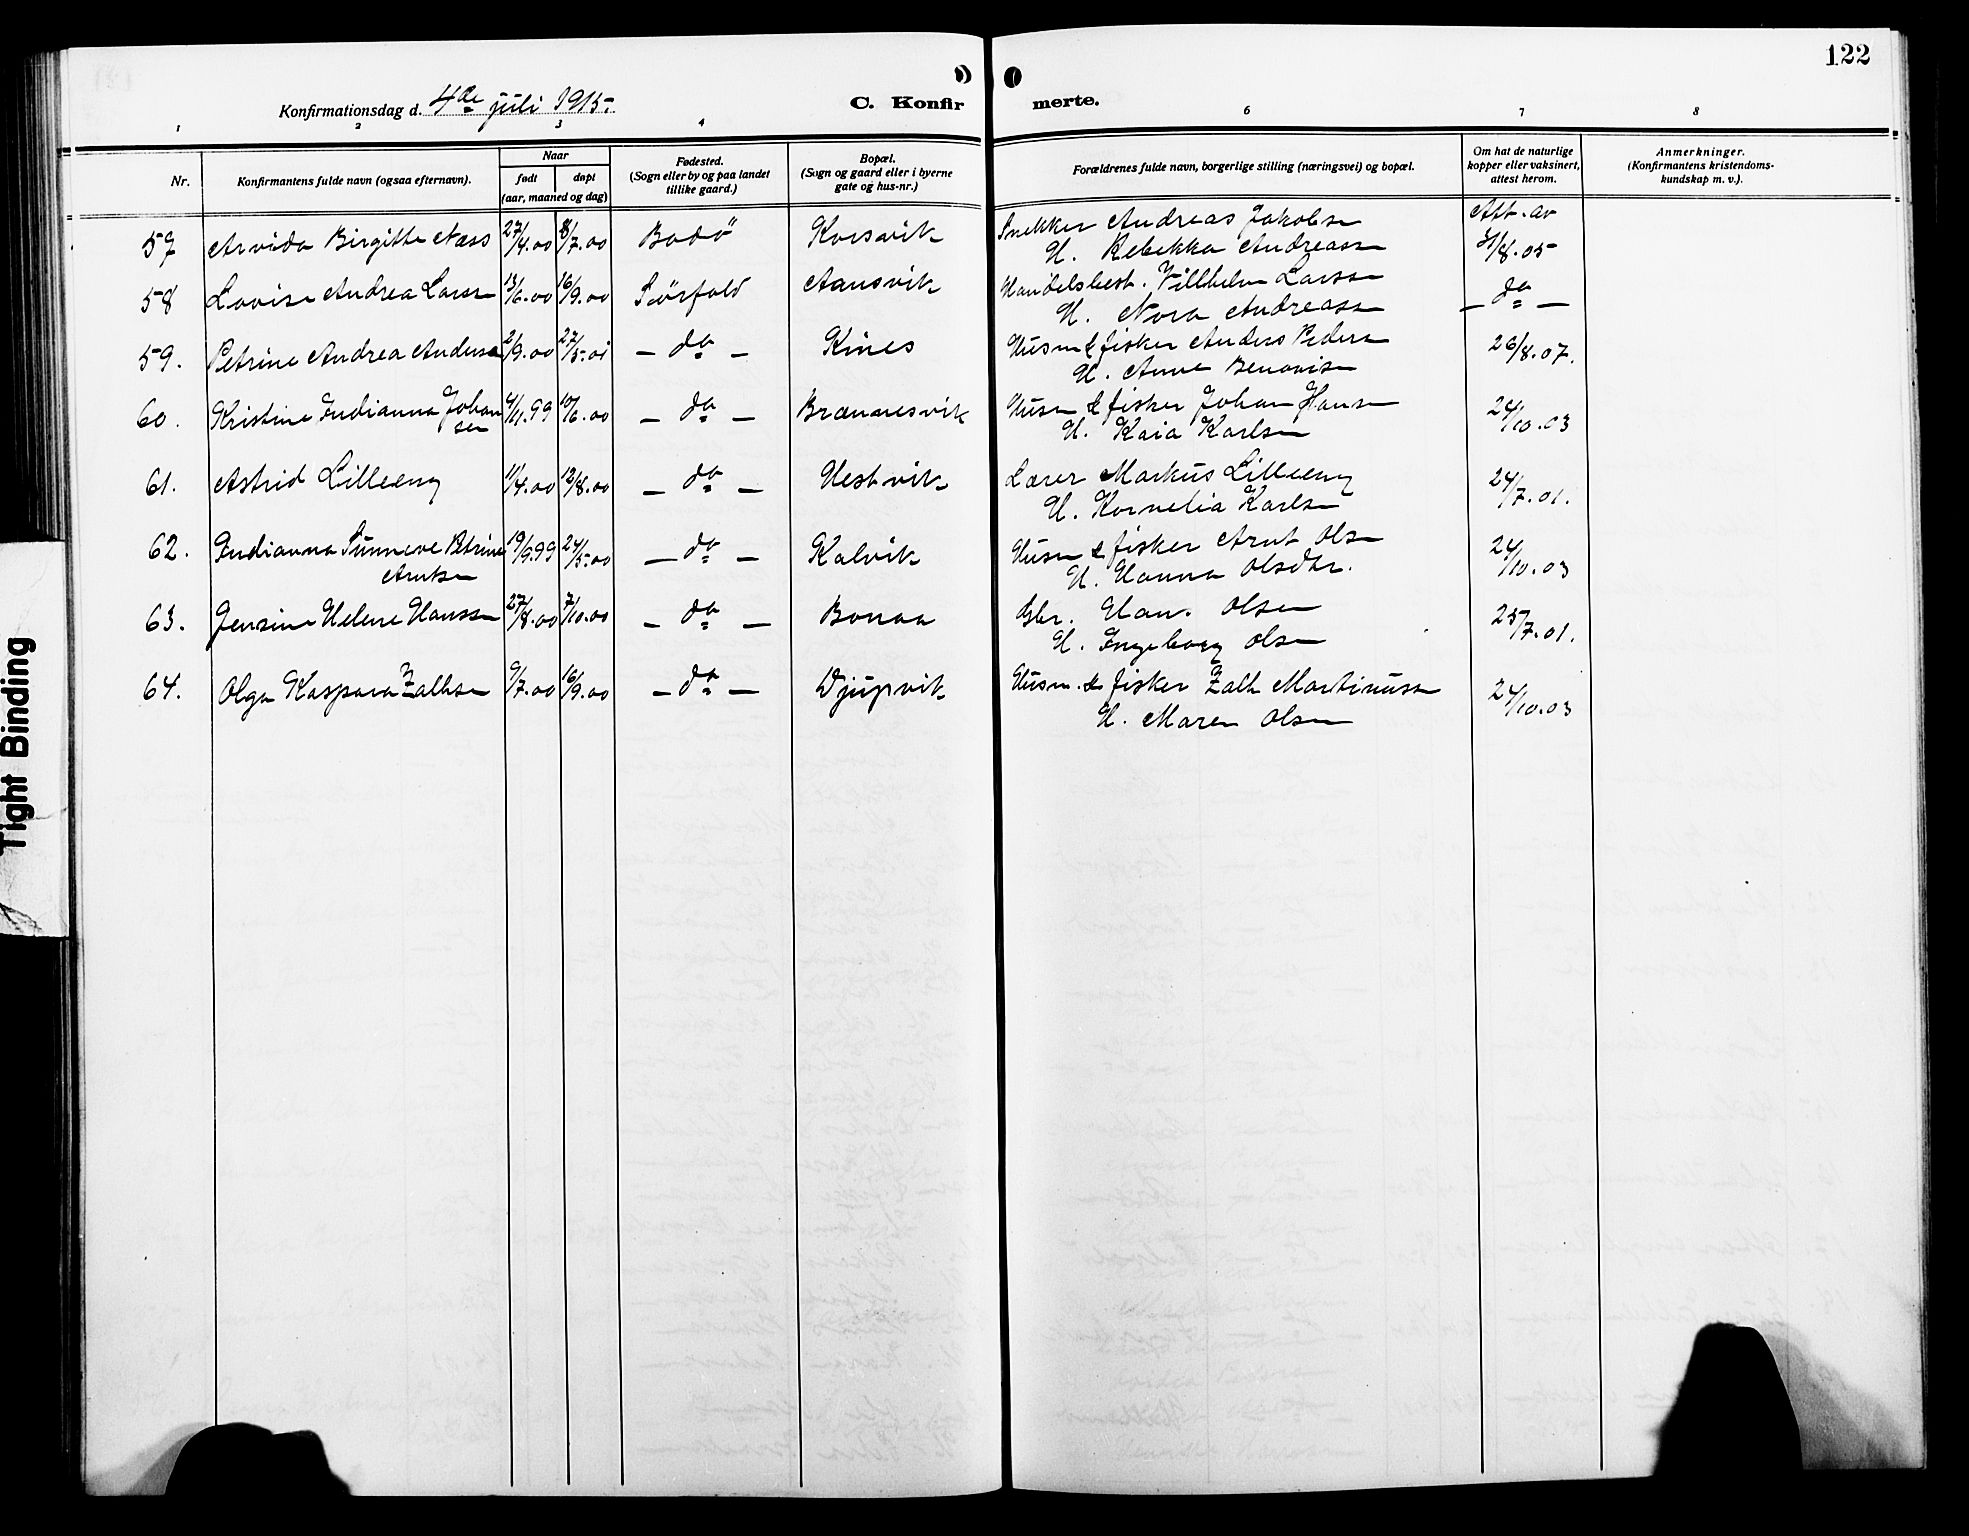 122
Konfirmationsdag d. 4de juli 1915.
C. Konfir merte.
1 2 3 4 6 7 8
Nr.
Konfirmantens fulde navn (ogsaa efternavn).
Naar
født døpt
(aar, maaned og dag)
Fødested.
(Sogn eller by og paa landet
tillike gaard.)
Bopæl.
(Sogn og gaard eller i byerne
gate og hus-nr.)
Forældrenes fulde navn, borgerlige stilling (næringsvei) og bopæl.
Om hat de naturlige
kopper eller vaksinert,
attest herom.
Anmerkninger.
(Konfirmantens kristendoms-
kundskap m. v.).
57 Arvida Birgitte Næss 27/4.00 8/7.00 Bodö Korsvik Snekker Andreas Jakobsen Att. av
H. Rebekka Andreassen /8.05
58 Lovise Andrea Larsen 13/6.00 16/9.00 Sörfold Aansvik Handelsbest. Villhelm Larssen - do -
H. Nora Andreassen
59. Petrine Andrea Andersen 2/9.00 27/5.01 - do - Kines Husm & fisker Anders Pedersen 26/8.07.
H. Anne Benovise
60. Kristine Indianna Johan 4/11.99 10/6.00 - do - Brænnesvik Husm & fisker Johan Hansen 24/10.03
sen H. Kaia Karlsen
61. Astrid Lilleeng 11/4.00 12/8.00 - do - Hestvik Lærer Markus Lilleeng 24/7.01.
H. Kornelia Karlsen
62. Indianna Sunneve Petrine 19/9.99 24/5.00 - do - Kalvik Husm & fisker Arnt Olsen 24/10.03
Arntsen H. Hanna Olsdtr.
63. Jensine Helene Hanssen 27/8.00 7/10.00 - do - Bonaa Gbr. Han. Olsen 25/7.01.
H. Ingeborg Olsen
64. Olga Kaspara Zalhsen 9/7.00 16/9.00 - do - Djupvik Husm. & fisker Zalh Martinussen 24/10.03
H. Maren Olsen
Tight Binding